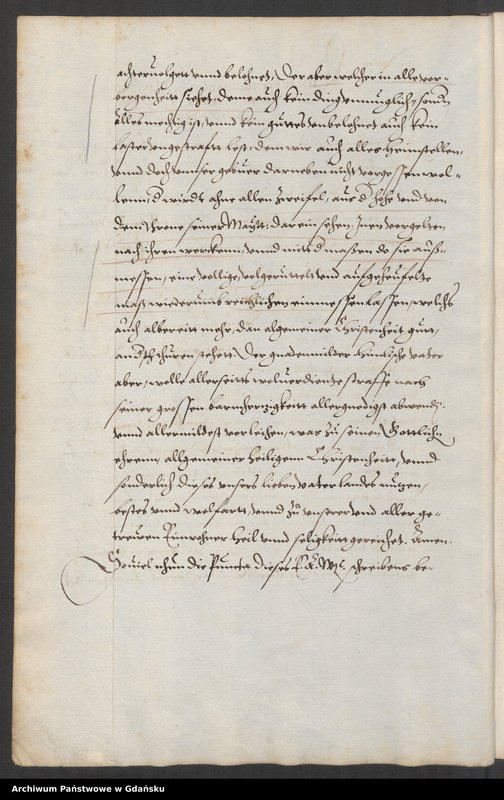 achtervolgett vnnd belohnet, Der aber welcher in alle vor-
borgenheitt siehet, deme auch kein ding vnmuglich, sond'n
alles mechtig ist, vnnd kein guttes vnbelohnet auch kein
laster vngestrafft lest, dem wir auch alles heimstellen,
vnnd doch vnnser gebuer darneben nicht vorgessen wol-
lenn, d' wirdt ohne allen zweifel, aus d' hohe vnd von
dem throne seiner Maytt: darein sehen, Jnen vorgelten
nach ihren wercken, vnnd mitt d' maßen do sie auß-
messen, eine vollige, volgeruttelt vnd aufgeheufelte
maß wiederumb reichlichen einmessen lassen, welchs
auch albereitt mehr, dan algemeiner Christenheit gutt,
an d' thüren stehett. Der gnadenmilter himlische vater
aber, wolle allerseitts woluerdiente straffe nach
seiner grossen barmherzigkeitt allergnedigst abwend'n
vnnd allermildest vorleihen, was zu seinen Gottlichn
ehrenn, allgemeiner heiligenn Christenheitt, vnnd
sonderlich dieses vnsers lieben vaterlands nutzen,
bestes vnd wolfartt, vnnd zu vnserer vnd aller ge-
trewen Einwohner heil vnnd seligkeitt gereichet. Amen.
Souiel nhun die Puncta dieses E. K. Mt. schreibens be-
Archiwum Państwowe w Gdańsku